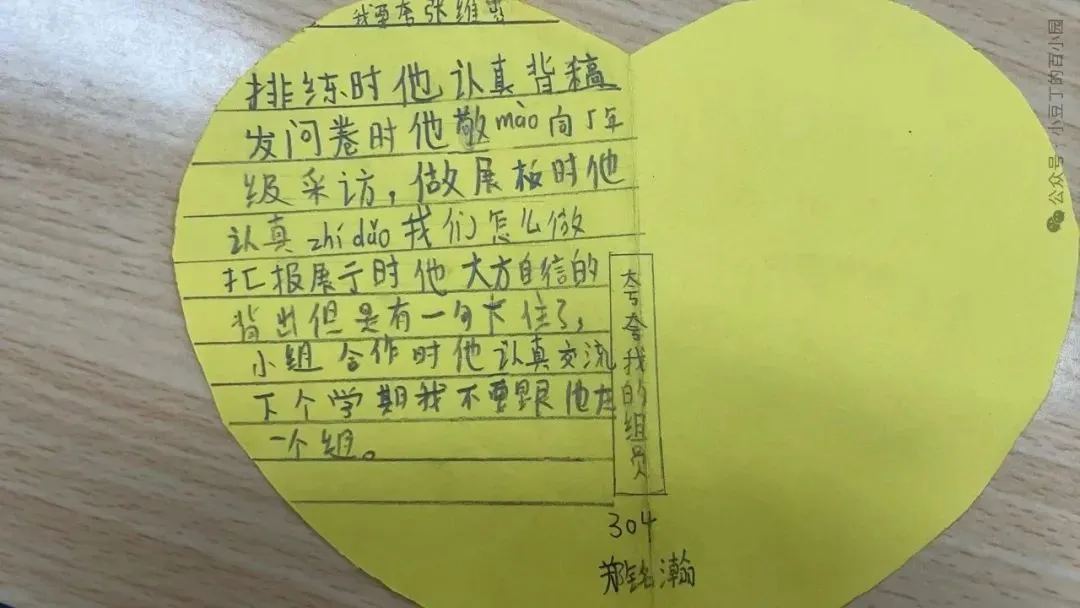 我要夸张维
排练时他认真背稿
发问卷时他敬mào向5年
级采访，做展板时他
认真zhí dǎo我们怎么做
汇报展示时他大方自信的
背出但是有一句卡住了，
小组合作时他认真交流
下个学期我不要跟他在
一个组。
夸夸我的组员
304
郑铭瀚
公众号 小豆丁的百小园